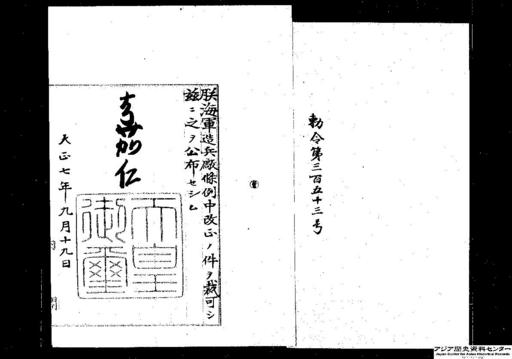 勅令第三百五十三号
朕海軍造兵廠條例中改正ノ件ヲ裁可シ
茲ニ之ヲ公布セシム
嘉仁
天皇
御璽
大正七年九月十九日
アジア歴史資料センター
Japan Center for Asian Historical Records